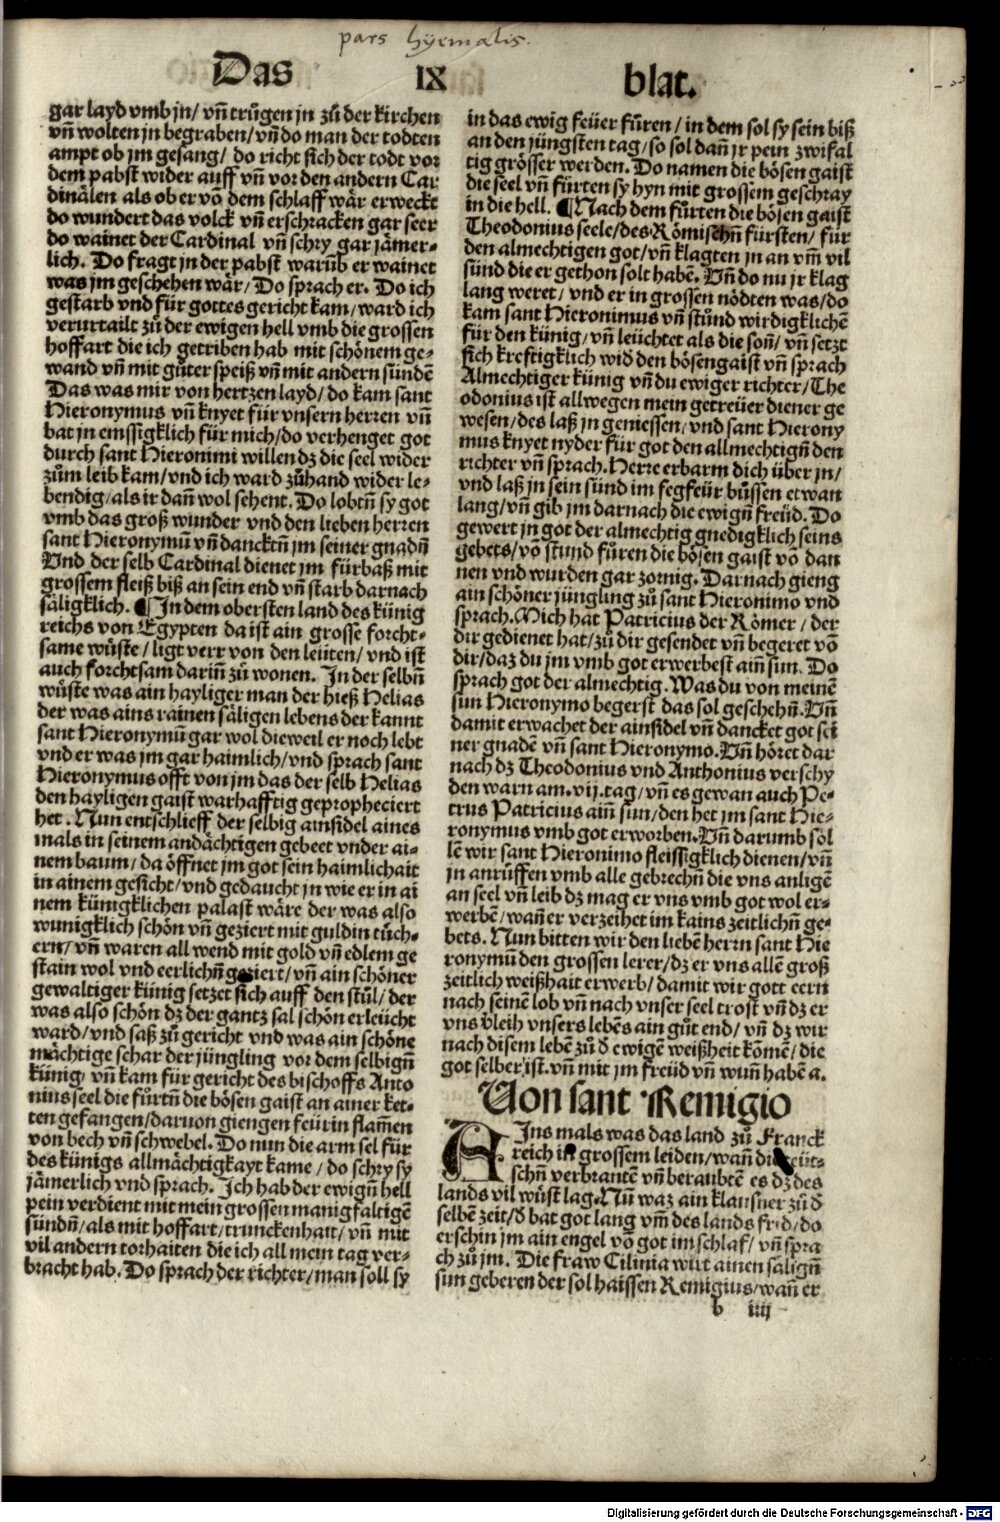 pars hÿemalis.
Das IX blat.
gar layd vmb jn/ vñ trůgen jn zů der kirchen
vñ wolten jn begraben/ vñ do man der todten
ampt ob jm gesang/ do richt sich der todt vor
dem pabst wider auff vñ vor den andern Car
dinälen als ob er võ dem schlaff wär erweckt
do wundert das volck vñ erschracken gar seer
do wainet der Cardinal vñ schry gar jämer-
lich. Do fragt jn der pabst warũb er wainet
was jm geschehen wär/ Do sprach er. Do ich
gestarb vnd für gottes gericht kam/ ward ich
verurtailt zů der ewigen hell vmb die grossen
hoffart die ich getriben hab mit schönem ge-
wand vñ mit gůter speiß vñ mit andern sündẽ
Das was mir von hertzen layd/ do kam sant
Hieronymus vñ knyet für vnsern herren vñ
bat jn emssigklich für mich/ do verhenget got
durch sant Hieronimi willen dz die seel wider
zům leib kam/ vnd ich ward zůhand wider le-
bendig/ als ir dañ wol sehent. Do lobtñ sy got
vmb das groß wunder vnd den lieben herren
sant Hieronymũ vñ dancktñ jm seiner gnadñ
Vnd der selb Cardinal dienet jm fürbaß mit
grossem fleiß biß an sein end vñ starb darnach
säligklich. ¶ In dem obersten land des künig
reichs von Egypten da ist ain grosse forcht-
same wůste/ ligt verr von den leüten/ vnd ist
auch forchtsam dariñ zů wonen. In der selbñ
wüste was ain hayliger man der hieß Helias
der was ains rainen säligen lebens der kannt
sant Hieronymũ gar wol dieweil er noch lebt
vnd er was jm gar haimlich/ vnd sprach sant
Hieronymus offt von jm das der selb Helias
den hayligen gaist warhafftig gepropheciert
het. Nun entschlieff der selbig ainsidel aines
mals in seinem andächtigen gebeet vnder ai-
nem baum/ da öffnet jm got sein haimlichait
in ainem gesicht/ vnd gedaucht jn wie er in ai
nem künigklichen palast wäre der was also
wunigklich schön vñ geziert mit guldin tůch-
ern/ vñ waren all wend mit gold vñ edlem ge
stain wol vnd eerlichñ geziert/ vñ ain schöner
gewaltiger künig setzet sich auff den stůl/ der
was also schön dz der gantz sal schön erleücht
ward/ vnd saß zů gericht vnd was ain schöne
mächtige schar der jüngling vor dem selbigñ
künig/ vñ kam für gericht des bischoffs Anto
nius seel die fůrtñ die bösen gaist an ainer ket-
ten gefangen/ daruon giengen feür in flam̃en
von bech vñ schwebel. Do nun die arm sel für
des künigs allmächtigkayt kame/ do schry sy
jämerlich vnd sprach. Ich hab der ewigñ hell
pein verdient mit mein grossen manigfaltigẽ
sündñ/ als mit hoffart/ trunckenhait/ vñ mit
vil andern torhaiten die ich all mein tag ver-
bracht hab. Do sprach der richter/ man soll sy
in das ewig feüer fůren/ in dem sol sy sein biß
an den jüngsten tag/ so sol dañ jr pein zwifal
tig grösser werden. Do namen die bösen gaist
die seel vñ fůrten sy hyn mit grossem geschray
in die hell. ¶ Nach dem fůrten die bösen gaist
Theodonius seele/ des Römischñ fürsten/ für
den almechtigen got/ vñ klagten jn an vm̃ vil
sünd die er gethon solt habẽ. Vñ do nu jr klag
lang weret/ vnd er in grossen nödten was/ do
kam sant Hieronimus vñ stůnd wirdigklichẽ
für den künig/ vñ leüchtet als die soñ/ vñ setzt
sich kreftigklich wid den bösen gaist vñ sprach
Almechtiger künig vñ du ewiger richter/ The
odonius ist allwegen mein getreüer diener ge
wesen/ des laß jn geniessen/ vnd sant Hierony
mus knyet nyder für got den allmechtigñ den
richter vñ sprach. Herre erbarm dich über jn/
vnd laß jn sein sünd im fegfeür bůssen etwan
lang/ vñ gib jm darnach die ewigñ freüd. Do
gewert jn got der almechtig gnedigklich seins
gebets/ võ stund fůren die bösen gaist võ dan
nen vnd wurden gar zornig. Darnach gieng
ain schöner jüngling zů sant Hieronimo vnd
sprach. Mich hat Patricius der Römer/ der
dir gedienet hat/ zů dir gesendet vñ begeret võ
dir/ daz du jm vmb got erwerbest aiñ sun. Do
sprach got der almechtig. Was du von meinẽ
sun Hieronymo begerst das sol geschehñ. Vñ
damit erwachet der ainsidel vñ dancket got sei
ner gnadẽ vñ sant Hieronymo. Vñ höret dar
nach dz Theodonius vnd Anthonius verschy
den warn am .vij. tag/ vñ es gewan auch Pe-
trus Patricius aiñ sun/ den het jm sant Hie-
ronymus vmb got erworben. Vñ darumb söl
lẽ wir sant Hieronimo fleissigklich dienen/ vñ
jn anrůffen vmb alle gebrechñ die vns anligẽ
an seel vñ leib dz mag er vns vmb got wol er-
werbẽ/ wañ er verzeihet im kains zeitlichñ ge-
bets. Nun bitten wir den liebẽ herrn sant Hie
ronymũ den grossen lerer/ dz er vns allẽ groß
zeitlich weißhait erwerb/ damit wir gott eern
nach seinẽ lob vñ nach vnser seel trost vñ dz er
vns vleih vnsers lebẽs ain gůt end/ vñ dz wir
nach disem lebẽ zů d ewigẽ weißheit kõmẽ/ die
got selber ist. vñ mit jm freüd vñ wuñ habẽ a.
Von sant Remigio
AIns mals was das land zů Franck
reich in grossem leiden/ wañ die
schñ verbrantẽ vñ beraubtẽ es dz des
lands vil wüst lag. Nũ waz ain klausner zů d
selbẽ zeit/ d bat got lang vm̃ des lands frid/ do
erschin jm ain engel võ got im schlaf/ vñ spra
ch zů jm. Die fraw Cilinia wirt ainen säligñ
sun geberen der sol haissen Remigius/ wañ er
b iiij
Digitalisierung gefördert durch die Deutsche Forschungsgemeinschaft - DFG